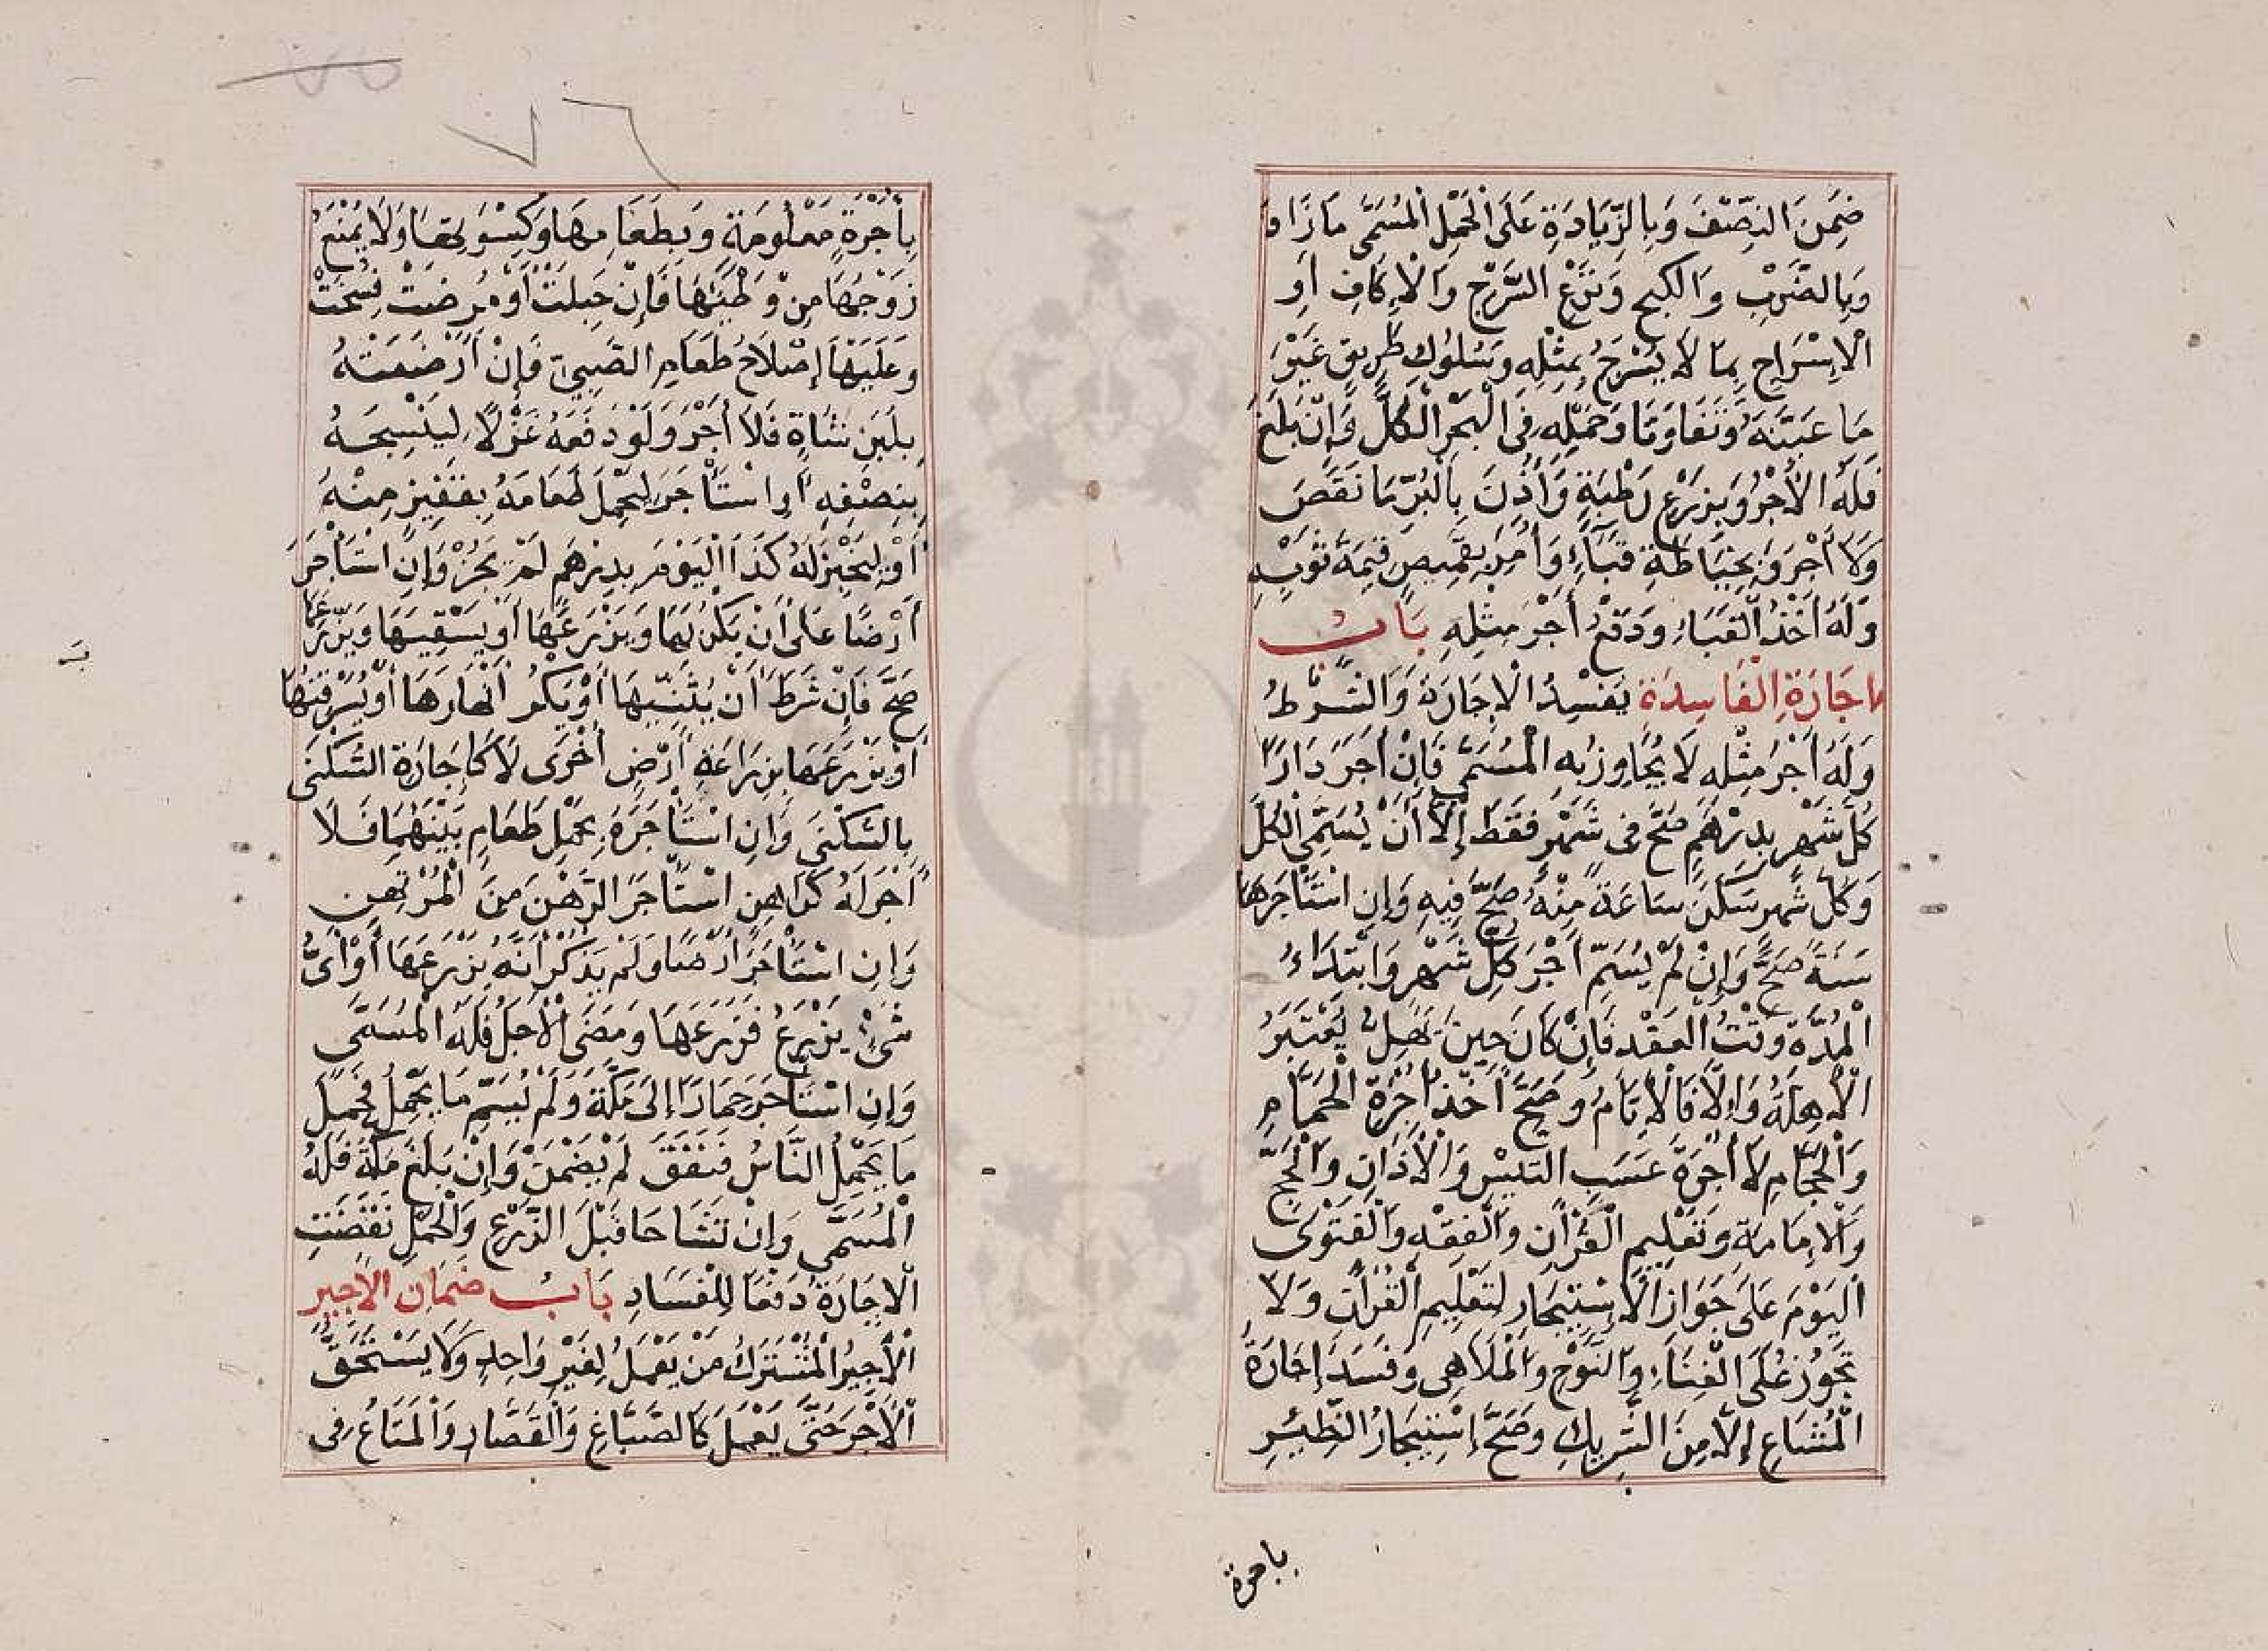 ضَمِنَ النِّصْفَ وَبِالزِّيَادَةِ عَلَى الْحَمْلِ الْمُسَمَّى مَا زَادَ
وَبِالضَّرْبِ وَالكبحِ وَنَزْعِ السَّرْجِ وَالْإِكَافِ أَوِ
الْإِسْرَاجِ بِمَا لَا يُسْرَجُ بِمِثْلِهِ وَسُلُوكِ طَرِيقٍ غَيْرَ
مَا عَيَّنَهُ وَتَفَاوَتَا وَحَمْلِهِ فِى الْبَحْرِ الْكُلَّ وَإِنْ بَلَغَ
فَلَهُ الْأَجْرُ وَبِزَرْعِ رَطْبَةٍ وَأُذِنَ بِالْبُرِّ مَا نَقَصَ
وَلَا أَجْرَ وَبِخِيَاطَةِ قَبَاءٍ وَأُمِرَ بِقَمِيصٍ قِيمَةُ ثَوْبِهِ
وَلَهُ أَخْذُ الْقَبَاءِ وَدَفْعُ أَجْرِ مِثْلِهِ بَابُ
الاجَارَةِ الْفَاسِدَةِ يُفْسِدُ الْإِجَارَةَ وَالشَّرْطُ
وَلَهُ أَجْرُ مِثْلِهِ لَا يُجَاوِزُ بِهِ الْمُسَمَّى فَإِنْ أَجَرَ دَارًا
كُلَّ شَهْرٍ بِدِرْهَمٍ صَحَّ فِى شَهْرٍ فَقَطْ إِلَّا أَنْ يُسَمِّىَ الْكُلَّ
وَكُلُّ شَهْرٍ سَكَنَ سَاعَةً مِنْهُ صَحَّ فِيهِ وَإِنِ اسْتَأْجَرَهَا
سَنَةً صَحَّ وَإِنْ لَمْ يُسَمِّ أَجْرَ كُلِّ شَهْرٍ وَابْتِدَاءُ
الْمُدَّةِ وَقْتُ الْعَقْدِ فَإِنْ كَانَ حِينَ يُهَلُّ يُعْتَبَرُ
الْأَهِلَّةُ وَإِلَّا فَالْأَيَّامُ وَصَحَّ أَخْذُ أُجْرَةِ الْحَمَّامِ
وَالْحَجَّامِ لَا أُجْرَةُ عَسَبِ التَّيْسِ وَالْأَذَانِ وَالْحَجِّ
وَالْإِمَامَةِ وَتَعْلِيمِ الْقُرْآنِ وَالْفِقْهِ وَالْفَتْوَى
الْيَوْمَ عَلَى جَوَازِ الْإِسْتِيجَارِ لِتَعْلِيمِ الْقُرْآنِ وَلَا
تَجُوزُ عَلَى الْغِنَاءِ وَالنَّوْحِ وَالْمَلَاهِى وَفَسَدَ إِجَارَةُ
الْمُشَاعِ إِلَّا مِنَ الشَّرِيكِ وَصَحَّ إِسْتِيجَارُ الظِّئِرِ
باجرة
٧٦
بِأُجْرَةٍ مَعْلُومَةٍ وَبِطَعَامِهَا وَكِسْوَتِهَا وَلَا يَمْنَعُ
زَوْجَهَا مِنْ وَطْيِهَا فَإِنْ حَبِلَتْ أَوْ مَرِضَتْ فُسِخَتْ
وَعَلَيْهَا إِصْلَاحُ طَعَامِ الصَّبِىِّ فَإِنْ أَرْضَعَتْهُ
بِلَبَنِ شَاةٍ فَلَا أَجْرَ وَلَوْ دَفَعَهُ غَزْلًا لِيَنْسِجَهُ
بِنِصْفِهِ أَوِ اسْتَأْجَرَ لِيَحْمِلَ طَعَامَهُ بِقَفِيزٍ مِنْهُ
أَوْ لِيَخْبِزَ لَهُ كَذَا الْيَوْمَ بِدِرْهَمٍ لَمْ يَجُزْ وَإِنِ اسْتَأْجَرَ
أَرْضًا عَلَى أَنْ يَكْرُبَهَا وَيَزْرَعَهَا أَوْ يَسْقِيَهَا وَيَزْرَعَهَا
صَحَّ فَإِنْ شَرَطَ أَنْ يُثَنِّيَهَا أَوْ يَكْرِ أَنْهَارَهَا أَوْ يُسَرْقِنَهَا
أَوْ يَزْرَعَهَا بِزِرَاعَةِ أَرْضٍ أُخْرَى لَا كَإِجَارَةِ السُّكْنَى
بِالسُّكْنَى وَإِنِ اسْتَأْجَرَهُ بِحَمْلِ طَعَامٍ بَيْنَهُمَا فَلَا
أَجْرَ لَهُ كَرَاهِنٍ اسْتَأْجَرَ الرَّهْنَ مِنَ الْمُرْتَهِنِ
وَإِنِ اسْتَأْجَرَ أَرْضًا وَلَمْ يَذْكُرْ أَنَّهُ يَزْرَعُهَا أَوْ أَىُّ
شَىْءٍ يَزْرَعُ فَزَرَعَهَا وَمَضَى الْأَجَلُ فَلَهُ الْمُسَمَّى
وَإِنِ اسْتَأْجَرَ حِمَارًا إِلَى مَكَّةَ وَلَمْ يُسَمِّ مَا يَحْمِلُ فَحَمَلَ
مَا يَحْمِلُ النَّاسُ فَنَفَقَ لَمْ يَضْمَنْ وَإِنْ بَلَغَ مَكَّةَ فَلَهُ
الْمُسَمَّى وَإِنْ تَشَاحَا قَبْلَ الزَّرْعِ وَالْحَمْلِ نُقِضَتِ
الْإِجَارَةُ دَفْعًا لِلْفَسَادِ بَابُ ضَمَانِ الْأَجِيرِ
الْأَجِيرُ الْمُشْتَرَكُ مَنْ يَعْمَلُ لِغَيْرِ وَاحِدٍ وَلَا يَسْتَحِقُّ
الْأَجْرَ حَتَّى يَعْمَلَ كَالصَّبَّاغِ وَالْقَصَّارِ وَالْمَتَاعُ فِى